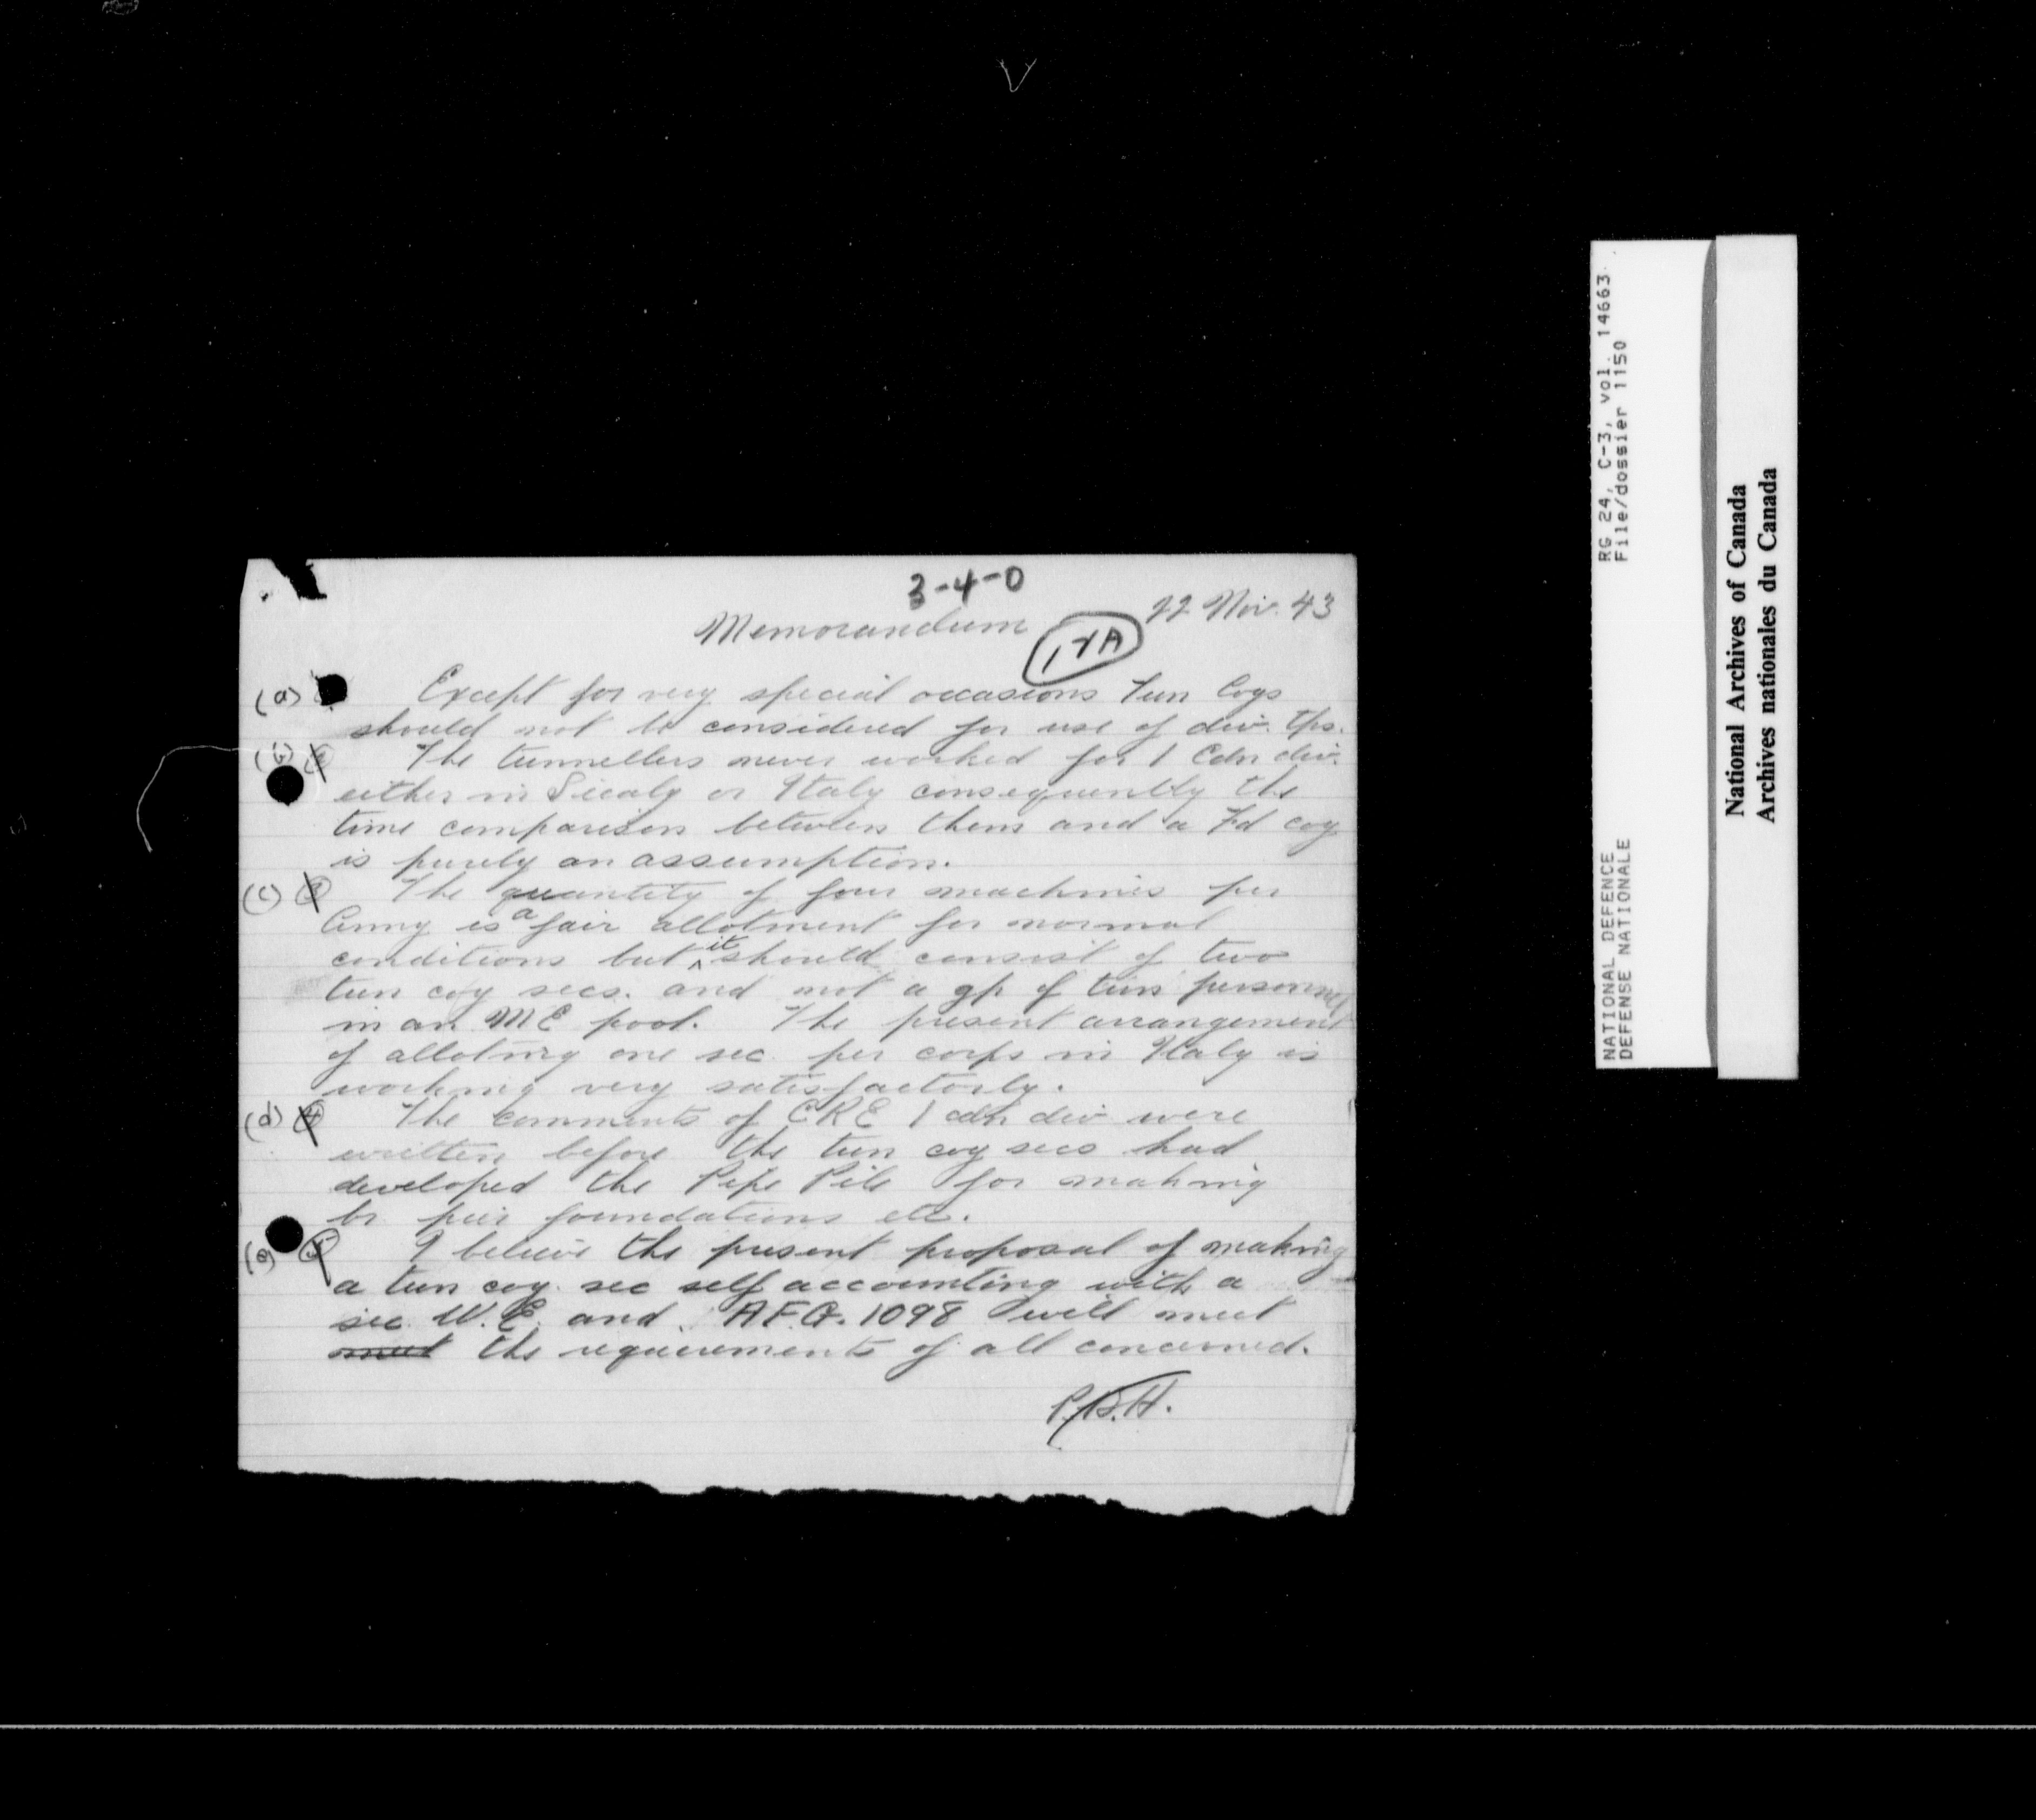 3-4-0
22 Nov. 43
Memorandum
17A
(a) Except for very special occasions Tun Coys
should not be considered for use of div. tps.
(b) The tunnellers never worked for 1 Cdn div.
either in Sicaly or Italy consequently the
time comparison between them and a Fd coy
is purely an assumption.
(c) 3 The quantity of four machines per
Army is a fair allotment for normal
conditions but it should consist of two
tun coy secs. and not a gp of tun personnel
in an ME pool. The present arrangement
of alloting one sec. per corps in Italy is
working very satisfactorly.
(d) 4 The comments of CRE 1 cdn div were
written before the tun coy secs had
developed the Pipe Pile for making
br. pier foundations etc.
(e) 5 I believe the present proposal of making
a tun coy. sec self accounting with a
sec. W.E. and A.F.G. 1098 will meet
meet the requirements of all concerned.
P.B.H.
RG 24, C-3, vol. 14663
File/dossier 1150
NATIONAL DEFENCE
DEFENSE NATIONALE
National Archives of Canada
Archives nationales du Canada